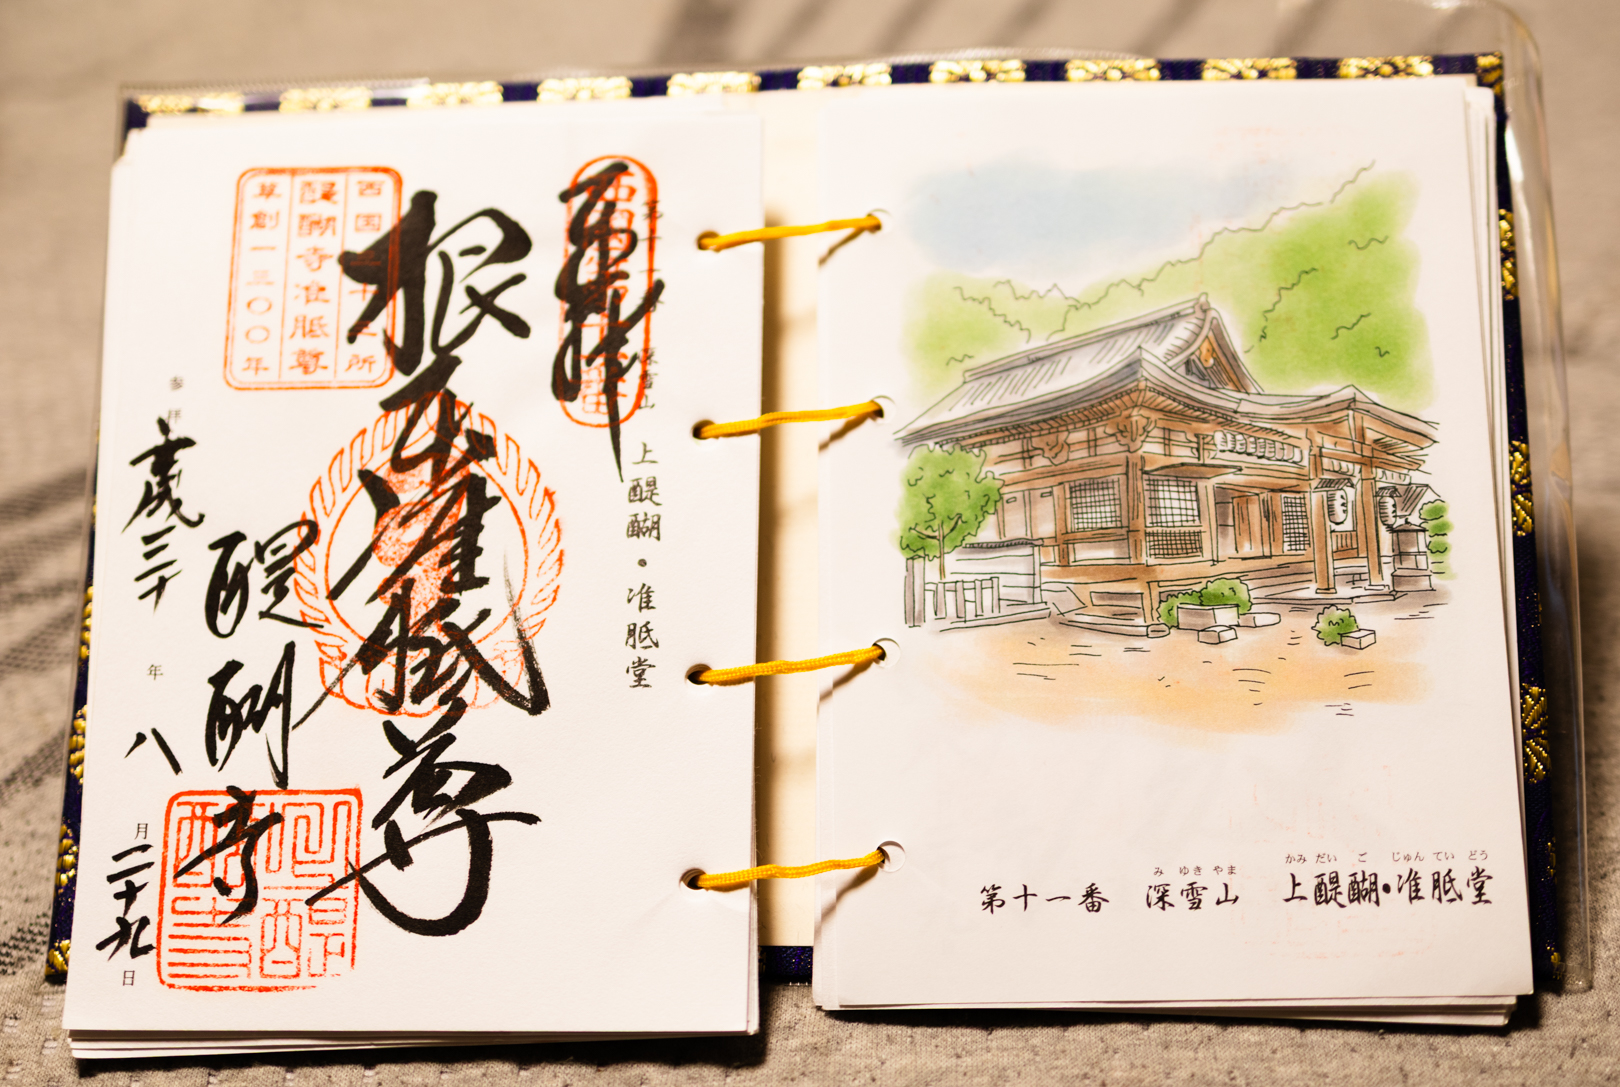 奉拝
第十一番 深雪山 上醍醐・准胝堂
根本准胝尊
西国三十三所
醍醐寺准胝尊
草創一三〇〇年
醍醐寺
参拝 平成三十年八月二十九日
第十一番 深雪山 上醍醐・准胝堂
み ゆき やま かみ だい ご じゅん てい どう